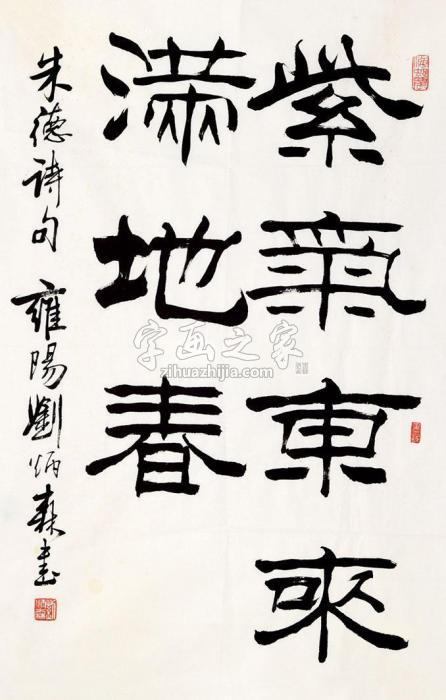 紫氣東来
满地春
朱德诗句 雍陽劉炳森書
字画之家
zihuazhijia.com